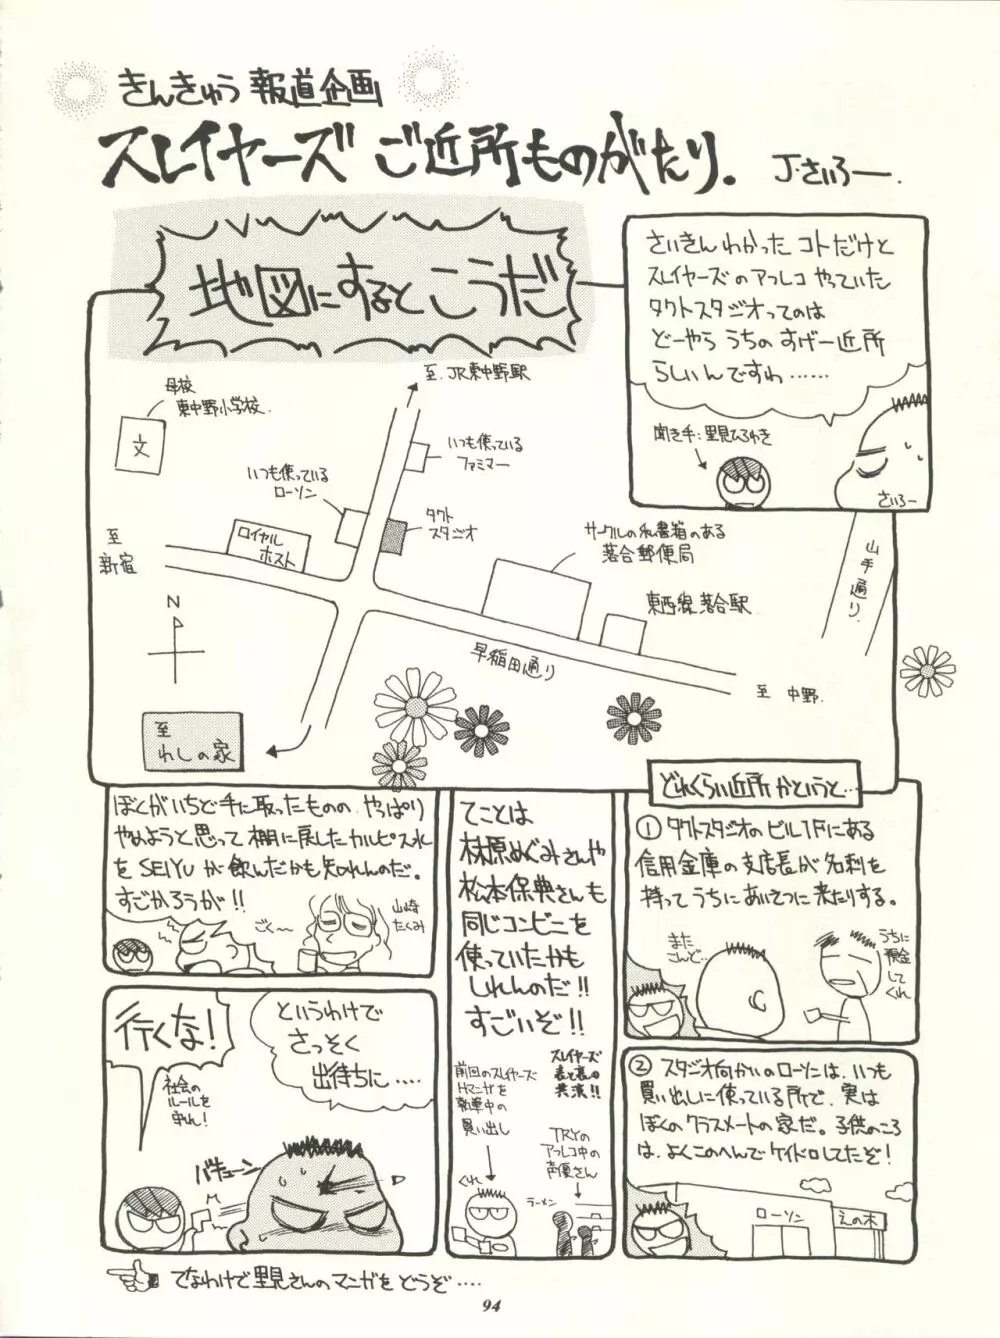 きんきゅう 報道企画
スレイヤーズ ご近所ものがたり.
J・さいろー.
地図にするとこうだ
さいきんわかった コトだけと
スレイヤーズのアフレコ やっていた
タクトスタジオってのは
どーやら うちの すげー近所
らしいんですわ……
聞き手:里見ひろゆき
さいろー
至 JR東中野駅
母校
東中野小学校.
文
いつも使っている
ファミマー
いつも使っている
ローソン
タクト
スタジオ
ロイヤル
ホスト
サークルの私書箱のある
落合郵便局
東西線落合駅
山手通り
至
新宿
N
早稲田通り
至 中野.
至
わしの家
どれくらい近所かというと…
① タクトスタジオのビル1Fにある
信用金庫の支店長が名刺を
持ってうちにあいさつに来たりする。
また
こんど…
うちに
預金
してくれ
② スタジオ向かいのローソンは、いつも
買い出しに使っている所で、実は
ぼくのクラスメートの家だ。子供のころ
は、よくこのへんでケイドロしてたぞ!
ローソン
えの木
てことは
林原めぐみさんや
松本保典さんも
同じコンビニを
使っていたかも
しれんのだ!!
すごいぞ!!
スレイヤーズ
表と裏の
共演!!
前回のスレイヤーズ
Hマンガを
執筆中の
買い出し
TRYの
アフレコ中の
声優さん
くれ
ラーメン
ぼくがいちど手に取ったものの、やっぱり
やめようと思って棚に戻したカルピス水
をSEIYUが飲んだかも知れんのだ。
すごかろうが!!
ごく〜
山崎
たくみ
というわけで
さっそく
出待ちに‥‥
行くな!
社会の
ルールを
守れ!
バキューン
でなわけで里見さんのマンガをどうぞ‥‥
94